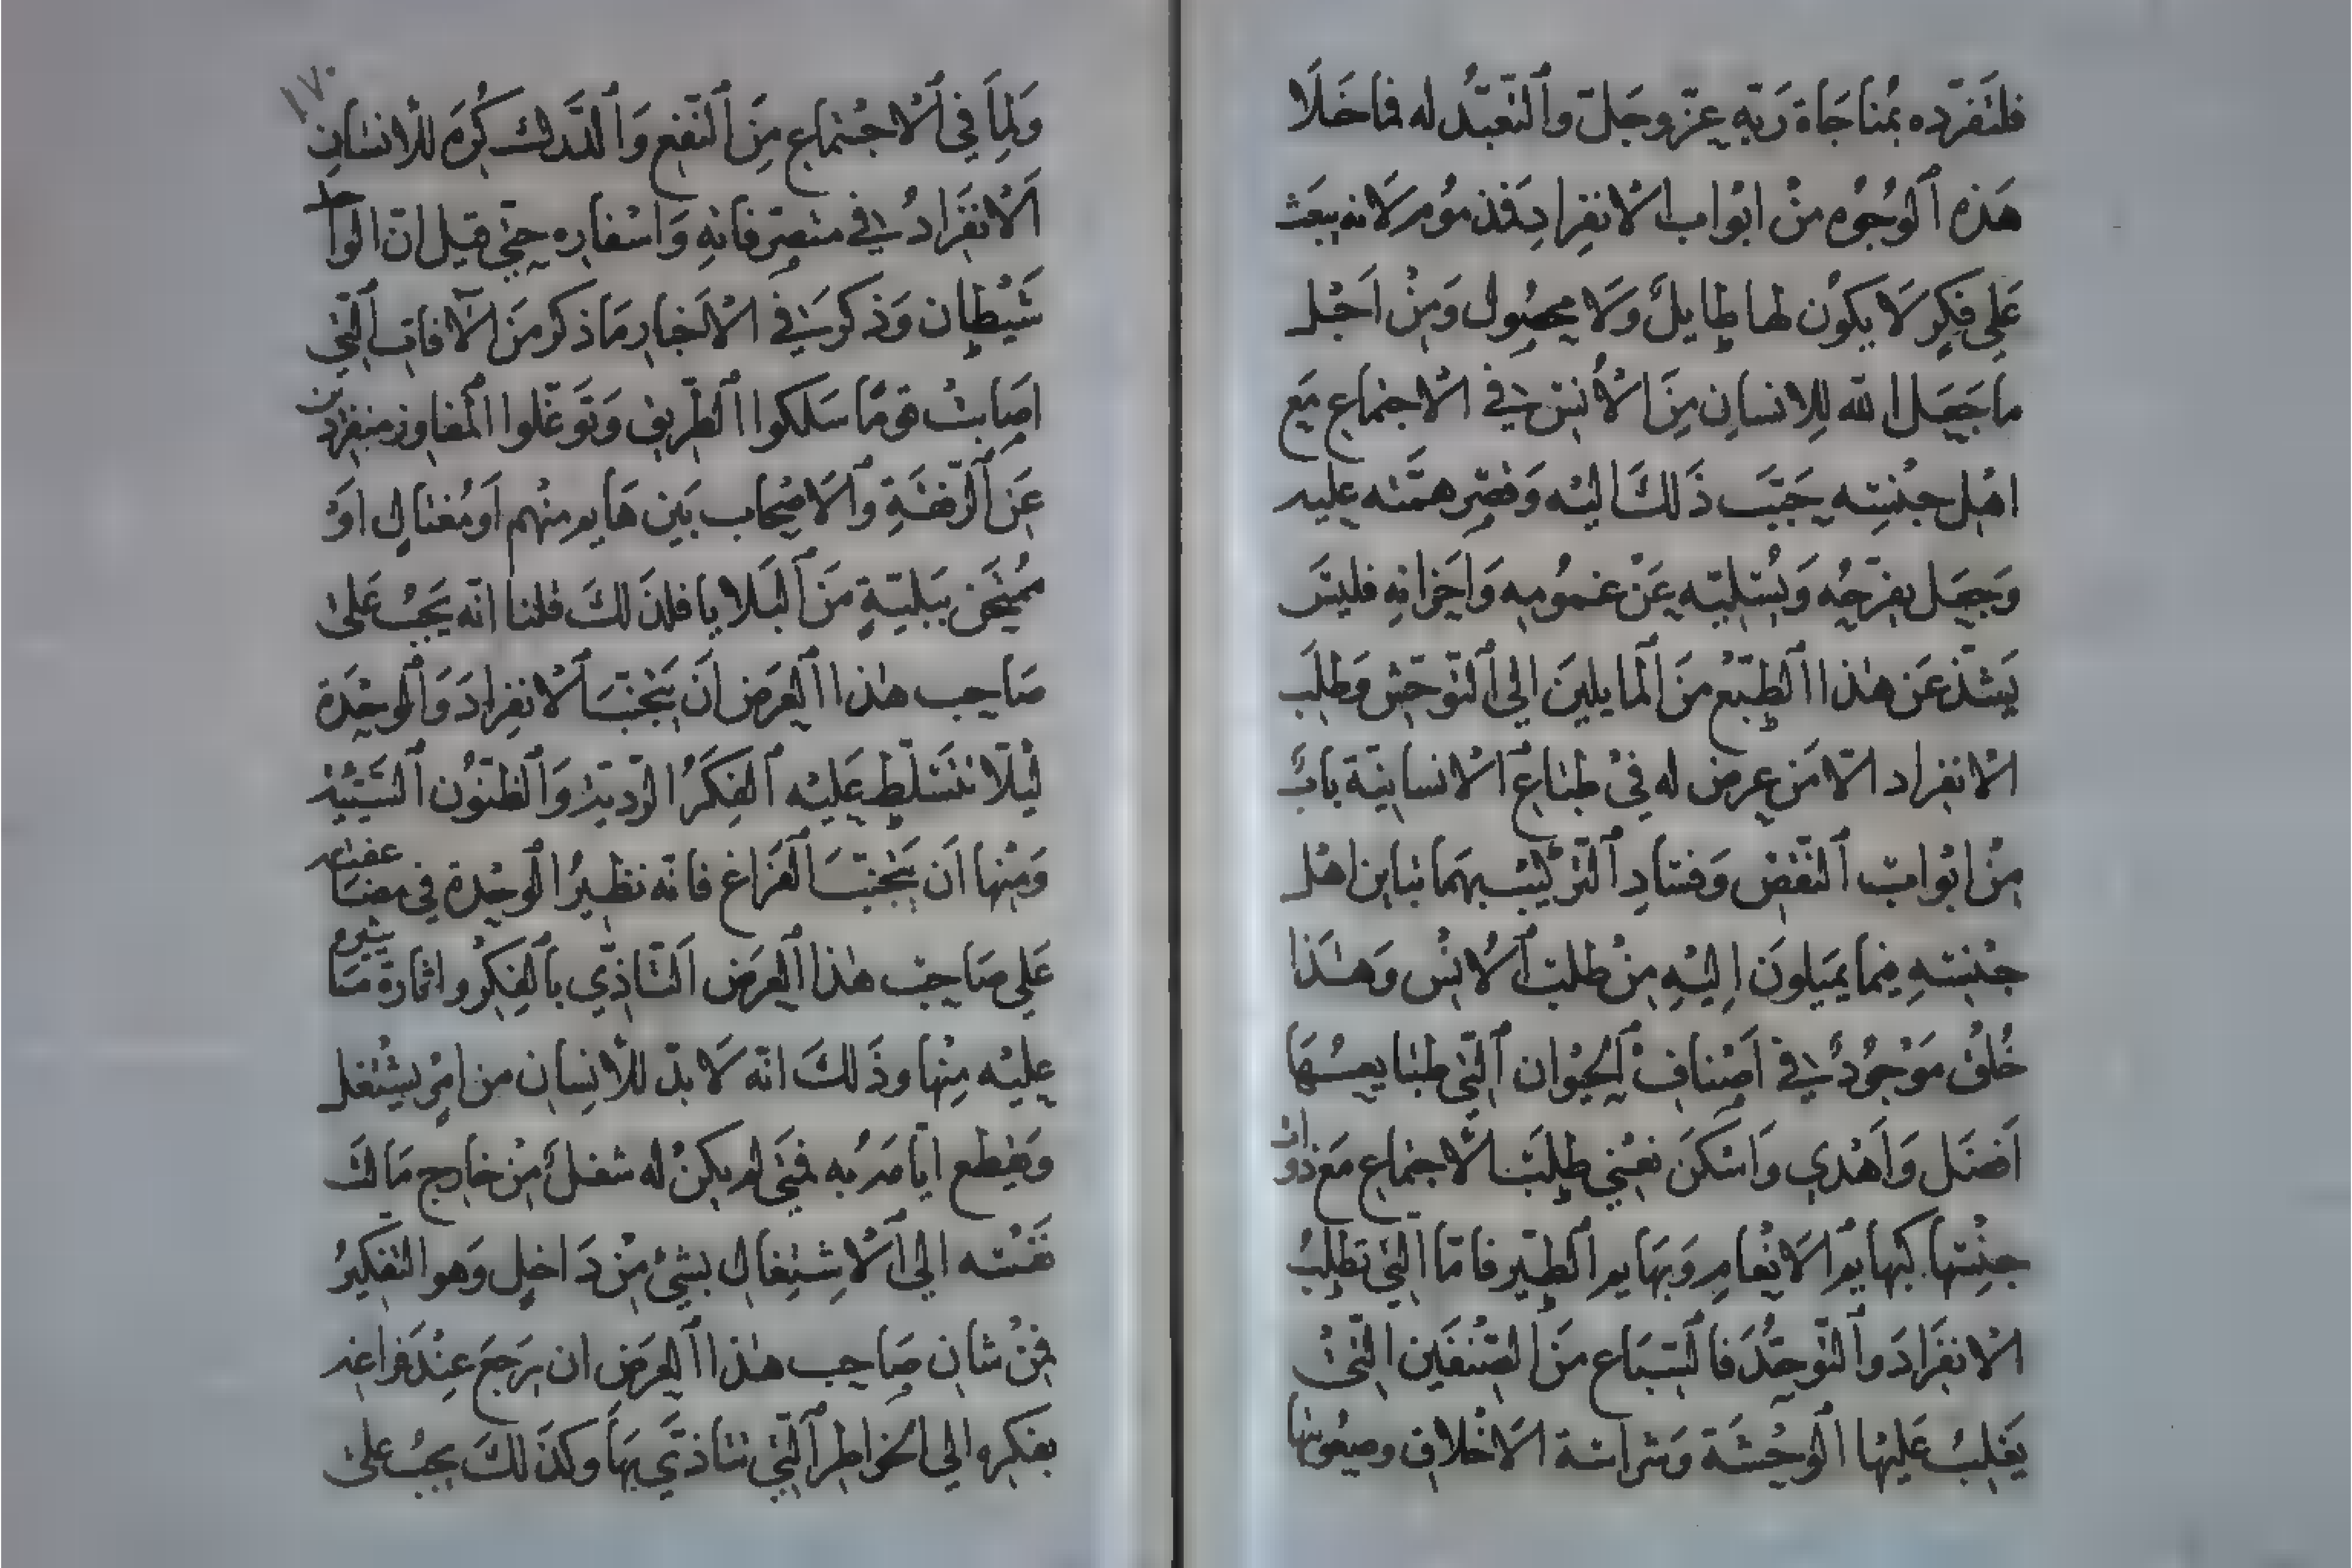 فلتفرّده بمُناجَاة رَبّه عزّ وجَلّ والتّعبّد له فما خَلَا
هَذه الوُجُوه منْ ابْواب الانفراد فَمذمُوم لَانه يبعَث
عَلى فكرٍ لَا يكوُن لها طايلٌ وَلَا محصُول وَمِنْ اَجْل
ما جَعَل الله للِانسان مِنَ الأُنسْ في الاجتماع مَع
اهْل جنْسِه حَبَّب ذَلكَ اليْه وَقصَر همّتَه عليه
وَجعَل يفرّحُه وَيُسَلّيه عَنْ غمُومِه وَاحَزانِه فليسَ
يَشذّ عَن هذا الطبْع مِنَ المايلينَ الى التّوحّش وَطلَب
الانفراد الّا مَن عرض له في طبَاع الانسانيّة بابٌ
مِنْ ابْواب النّقْض وَفسَادِ التّركْيب بهمَا تباين اهْل
جنْسهِ فيما يَميلونَ اِليْهِ مِنْ طلب الاُنسْ وَهَذا
خُلقٌ مَوْجُودٌ في اَصْناف الحَيْوان التّى طبَايعهَا
اَفضَل وَاَهْدى وَاَسْكنَ نعْنى طلَبَ الاجتماع مَع ذوات
جنْسها كبهايم الانْعام وَبهايم الطيْر فامّا التى تطلبُ
الانفرَادَ والتّوحّدَ فالسّباع مَن الصّنفَين التّىْ
يَغلبُ عَليْها الوحْشَة وَشراسَة الاخْلاق وصعُوبتها
١٧٠
وَلِمَا في الاجْتماع مِنَ النّفع وَاللّذّة لك كُرِهَ للأنسان
الانفَرادُ في متصرّفاتِه وَاسْفاره حتّى قيل انّ الواحد
شَيْطان وَذكرَ في الاخبار مَا ذكر مَن الآفات التّى
اصَابتْ قومًا سَلكوا الطّريق وَتوَغّلوا المفاوز منفردين
عَن الرّفقَةِ وَالاصْحاب بَين هَايم منْهم اَو مُغتال اوْ
مُمْتَحَن ببَليّةٍ مَنَ البَلايا فلذَلكَ قلنا انّه يَجبُ عَلى
صَاحِب هٰذا العَرَض اَن يَتجَنّبَ الانفرادَ وَالوحْدَة
ليَلّا تتَسَلّط عَليْه الفِكَرُ الرّديّة وَالظنُون السّيّئة
وَمنْها اَن يَتجَنّبَ الفَراغ فانّه نظيرُ الوحْدة فى معنَا عقباه
عَلى صَاحِب هٰذا العَرَض التّاذّي بالفِكَر واثارة مَا يثور
عليْه منْها وذَلكَ انّه لَا بدّ للأنسان من امْرٍ يشْتغل
وَيقطع ايّامَه به فمتَى لم يكنْ له شغلٌ مِنْ خارج مَالتَ
نفْسُه الى الاشتِغال بشئٍ مِنْ دَاخل وَهو التفكيرُ
فمنْ شَان صَاحِب هٰذا العَرَض ان يَرجَع عندَ فراغه
بفكره الى الخواطر التّي يتاذَّى بهَا وكذَلكَ يجبُ عَلى